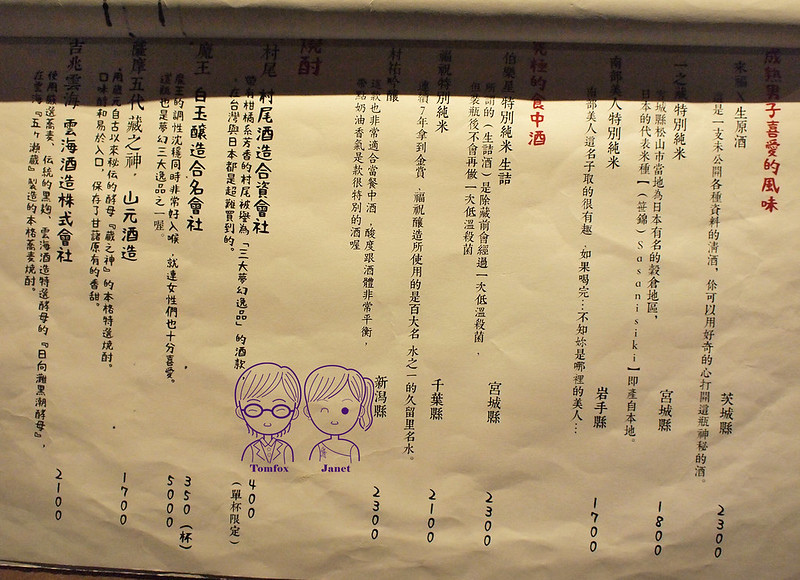 成熟男子喜愛的風味
來福 生原酒
茨城縣
2300
這是一支未公開各種資料的清酒，你可以用好奇的心打開這瓶神秘的酒。
一之藏 特別純米
宮城縣
1800
宮城縣松山市當地為日本有名的穀倉地區，
日本的代表米種【(笹錦)Sasanisiki】即產自本地。
南部美人 特別純米
岩手縣
1700
南部美人這名子取的很有趣，如果喝完…不知妳是哪裡的美人…
究極的食中酒
伯樂星 特別純米 生詰
宮城縣
2300
所謂的(生詰酒)是除藏前會經過一次低溫殺菌，
但裝瓶後不會再做一次低溫殺菌
福祝 特別純米
千葉縣
2100
連續7年拿到金賞，福祝釀造所使用的是百大名水之一的久留里名水。
村祐 吟釀
新潟縣
2300
這款也非常適合當餐中酒，酸度跟酒體非常平衡，
帶點奶油香氣是款很特別的酒喔
燒酎
村尾 村尾酒造合資會社
400
(單杯限定)
帶有柑橘系芳香的村尾被譽為「三大夢幻逸品」的酒款
，在台灣與日本都是超難買到的。
魔王 白玉釀造合名會社
350(杯)
5000
魔王的調性沈穩同時非常好入喉，就連女性們也十分喜愛。
這瓶也是夢幻三大逸品之一喔。
薩摩五代 藏之神，山元酒造
1700
用藏元自古以來祕伝的酵母『蔵之神』的本格特選燒酎。
口味醇和易於入口，保存了甘諸原有的香甜。
吉兆雲海 雲海酒造株式會社
2100
使用嚴選蕎麦、伝統的黑麴、雲海酒造特選酵母的『日向灘黑潮酵母』，
在雲海『五ヶ瀬蔵』製造的本格蕎麦燒酎。
Tomfox
Janet